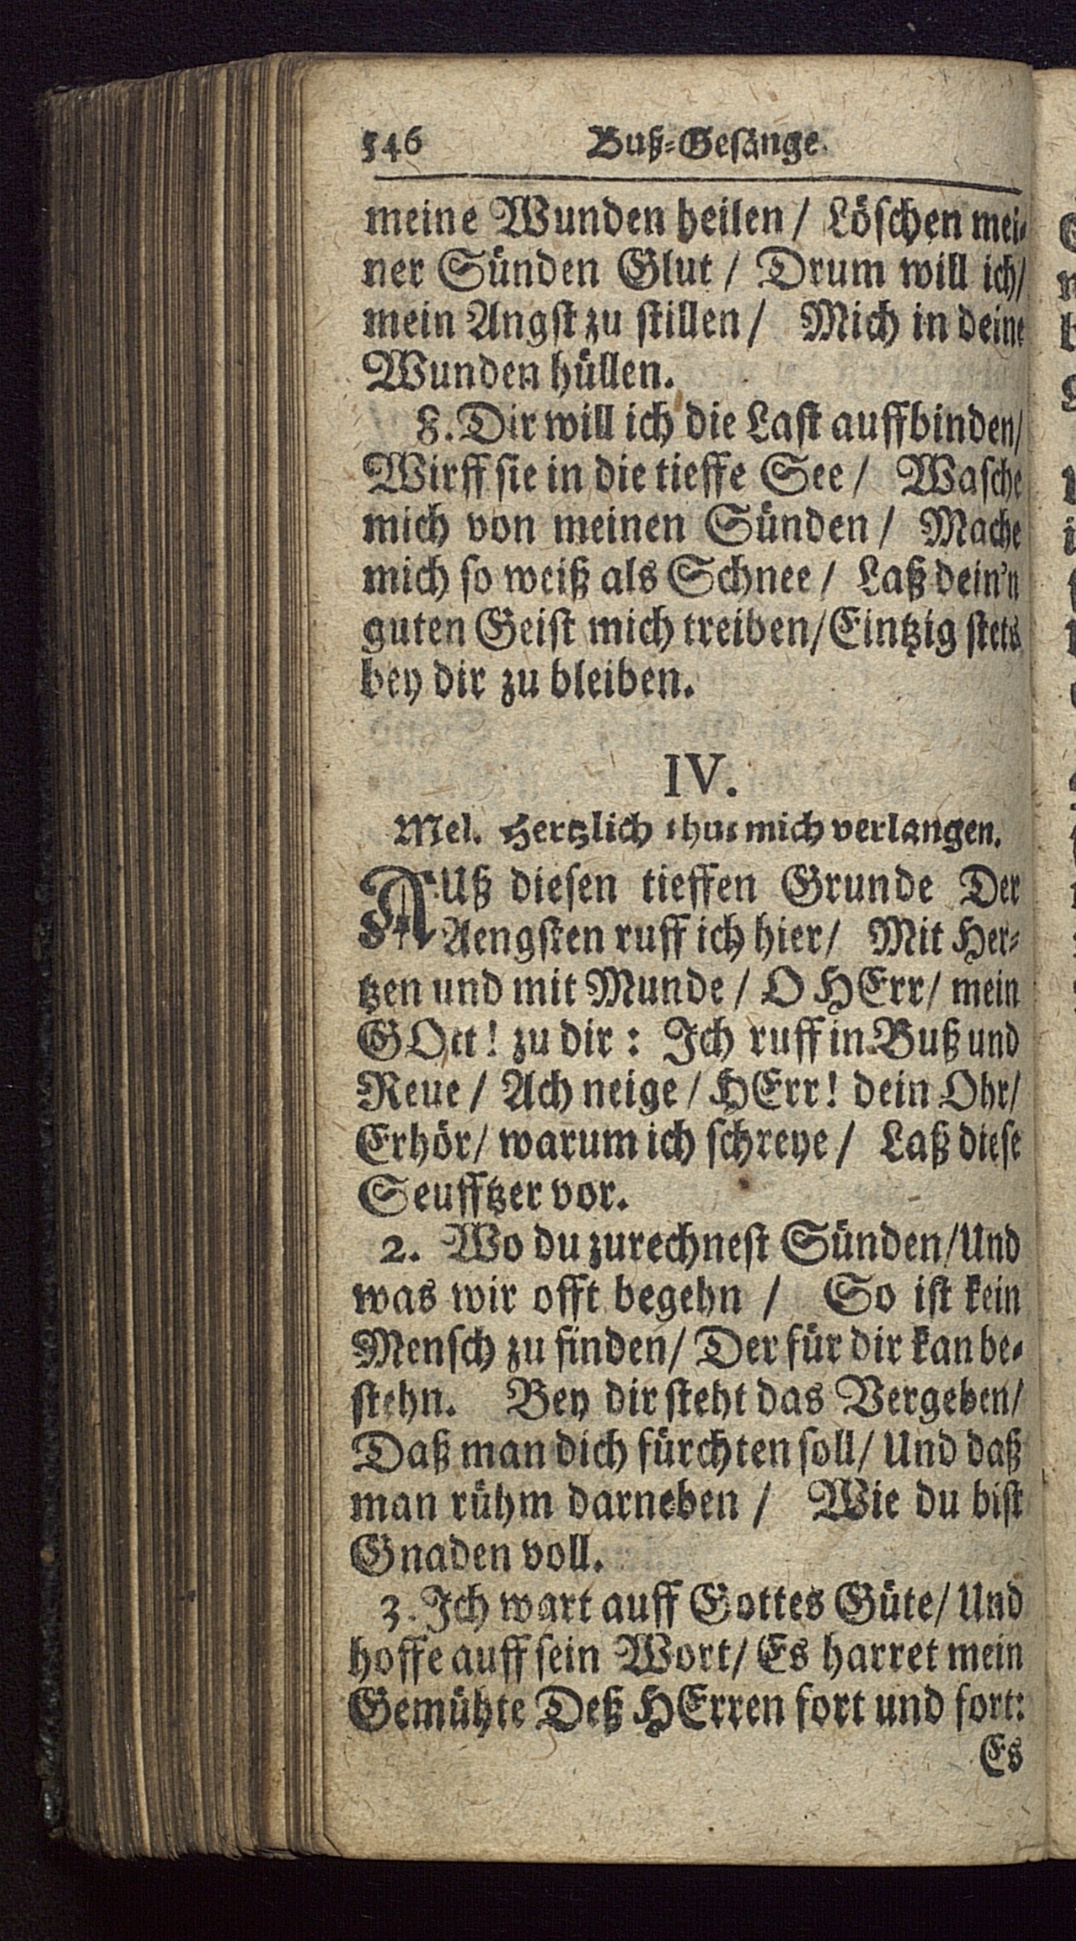 546 Buß-Gesänge.
meine Wunden heilen / Löschen mei-
ner Sünden Glut / Drum will ich/
mein Angst zu stillen / Mich in deine
Wunden hüllen.
8. Dir will ich die Last auffbinden/
Wirff sie in die tieffe See / Wasche
mich von meinen Sünden / Mache
mich so weiß als Schnee / Laß dein'n
guten Geist mich treiben/Eintzig stets
bey dir zu bleiben.
IV.
Mel. Hertzlich thut mich verlangen.
AUß diesen tieffen Grunde Der
Aengsten ruff ich hier/ Mit Her-
tzen und mit Munde / O HErr/ mein
GOtt! zu dir: Ich ruff in Buß und
Reue / Ach neige / HErr! dein Ohr/
Erhör/ warum ich schreye / Laß diese
Seufftzer vor.
2. Wo du zurechnest Sünden/Und
was wir offt begehn / So ist kein
Mensch zu finden/ Der für dir kan be-
stehn. Bey dir steht das Vergeben/
Daß man dich fürchten soll/ Und daß
man rühm darneben / Wie du bist
Gnaden voll.
3. Ich wart auff Gottes Güte/ Und
hoffe auff sein Wort/ Es harret mein
Gemühte Deß HErren fort und fort:
Es